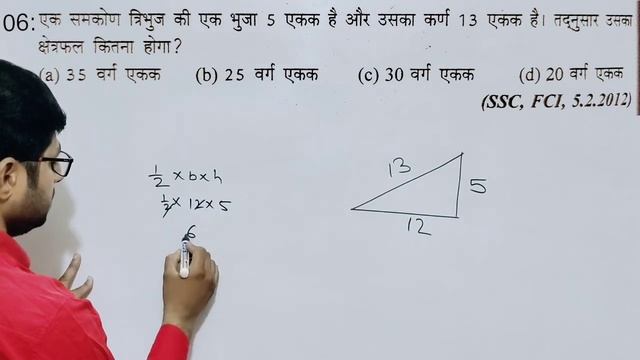 06: एक समकोण त्रिभुज की एक भुजा 5 एकक है और उसका कर्ण 13 एकक है। तद्नुसार उसका
क्षेत्रफल कितना होगा?
(a) 35 वर्ग एकक (b) 25 वर्ग एकक (c) 30 वर्ग एकक (d) 20 वर्ग एकक
(SSC, FCI, 5.2.2012)
1/2 × b × h
1/2 × 12 × 5
6
13
5
12